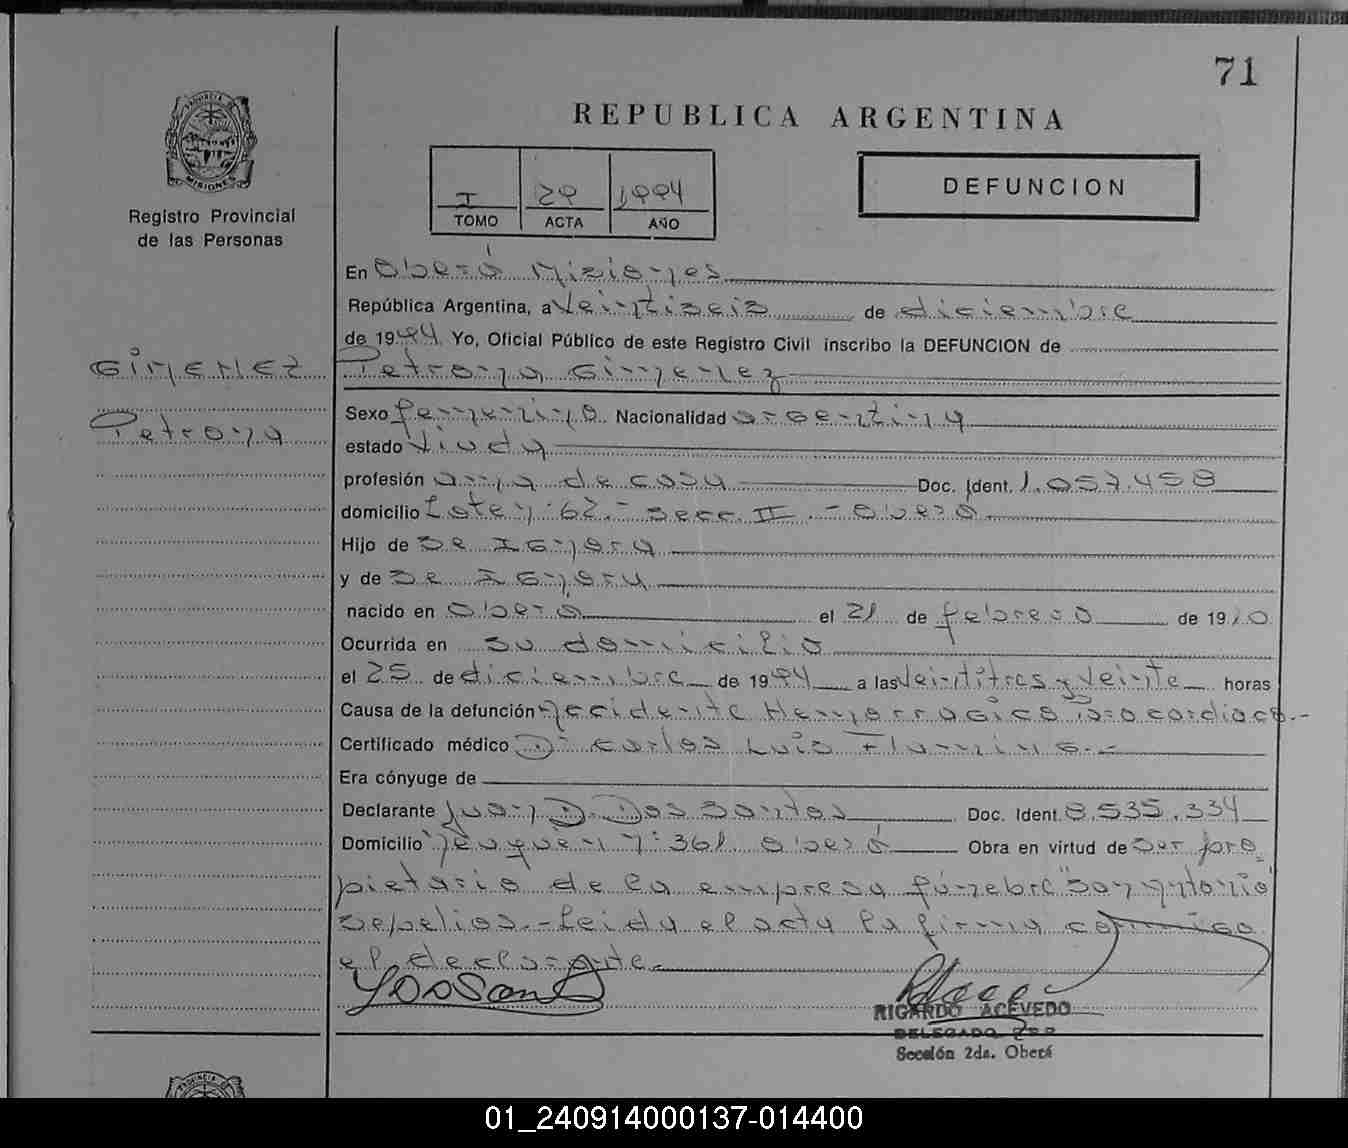 71
REPUBLICA ARGENTINA
PROVINCIA DE
MISIONES
Registro Provincial
de las Personas
I 29 1994
TOMO ACTA AÑO
DEFUNCION
En Oberá Misiones
República Argentina, a Veintiseis de diciembre
de 1994 Yo, Oficial Público de este Registro Civil inscribo la DEFUNCION de
GIMENEZ
Petrona Gimenez
Petrona
Sexo femenino Nacionalidad argentina
estado Viuda
profesión ama de casa Doc. Ident. 1.057.458
domicilio Lote n: 62.- Secc. II.- Oberá
Hijo de Se Ignora
y de Se Ignora
nacido en Oberá el 21 de febrero de 1910
Ocurrida en su domicilio
el 25 de diciembre de 1994 a las Veintitres y Veinte horas
Causa de la defunción Accidente Hemorragico cardiaco.-
Certificado médico Dr Carlos Luis.-
Era cónyuge de
Declarante Juan D. Dos Santos Doc. Ident. 8.535.334
Domicilio Neuquén n: 361 Oberá Obra en virtud de Ser pro
pietario de la empresa fúnebre "San Antonio"
sepelios.- Leida el acta la firma conmigo
el declarante.
RICARDO ACEVEDO
DELEGADO
Sección 2da. Oberá
PROVINCIA DE
01_240914000137-014400